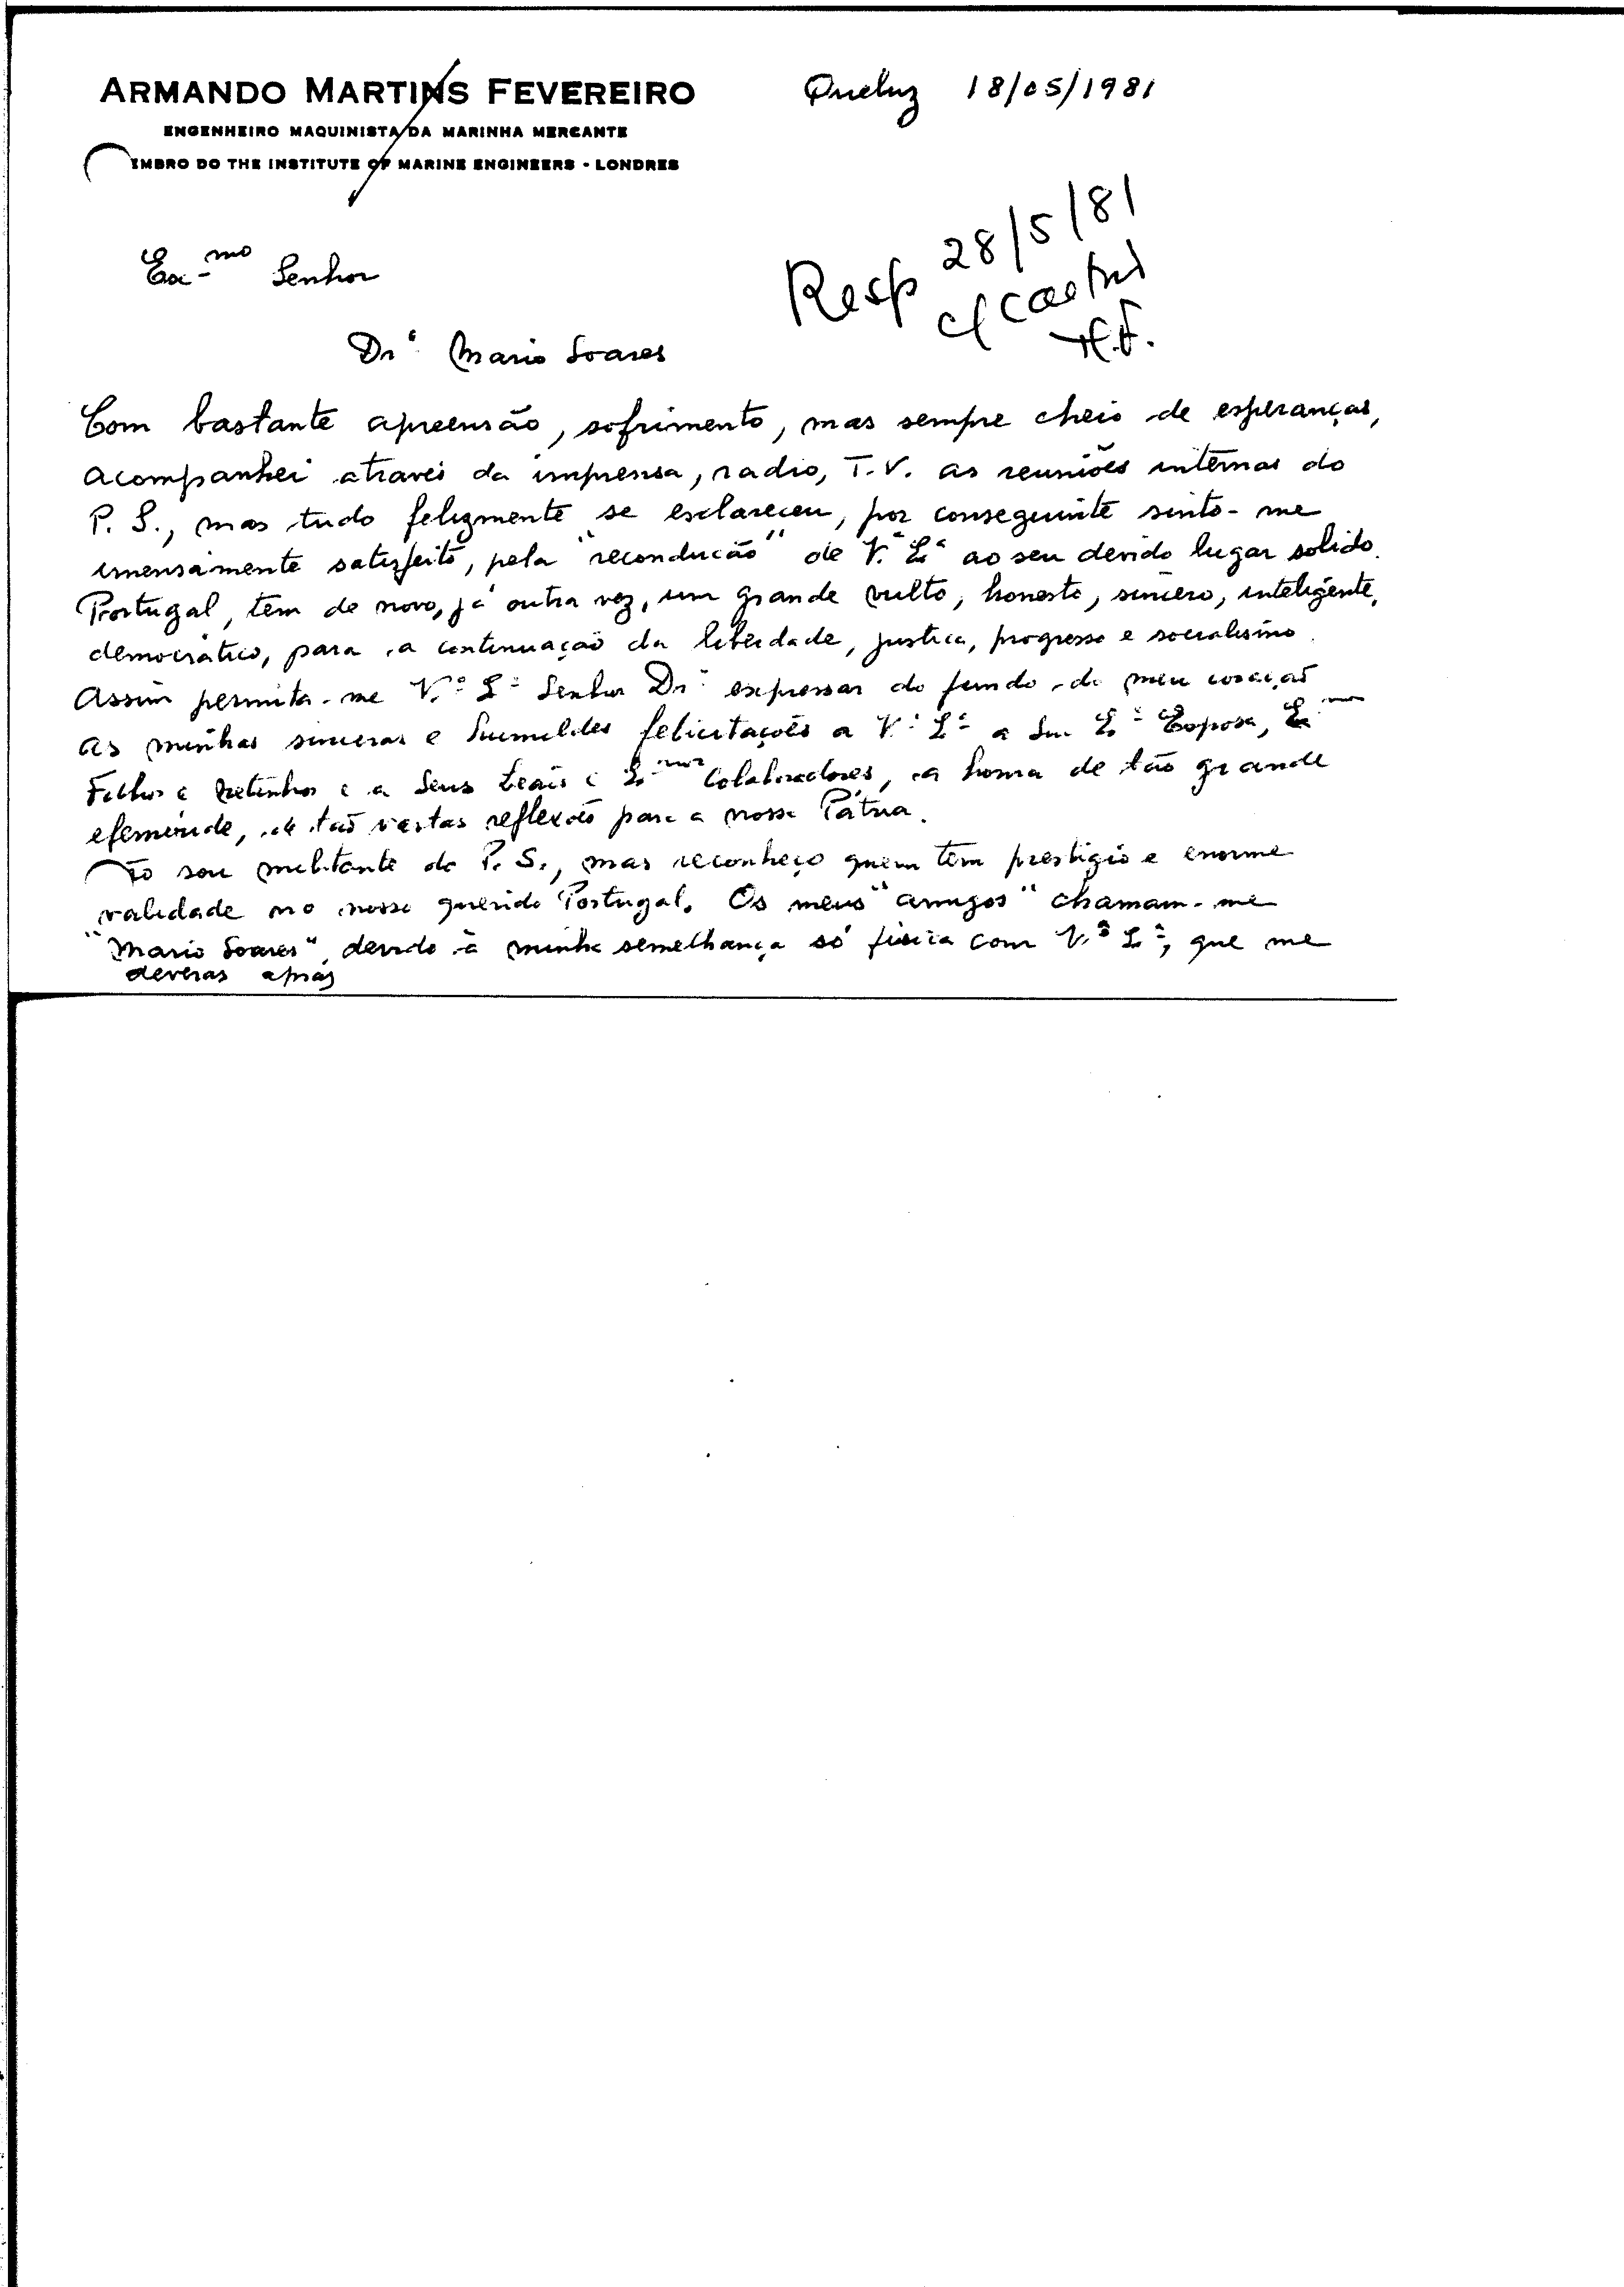 ARMANDO MARTINS FEVEREIRO
ENGENHEIRO MAQUINISTA DA MARINHA MERCANTE
EMBRO DO THE INSTITUTE OF MARINE ENGINEERS - LONDRES
Queluz 18/05/1981
Resp 28/5/81
c/
Ex.mo Senhor
Drº Mario Soares
Com bastante apreensão, sofrimento, mas sempre cheio de esperanças,
acompanhei através da imprensa, radio, T.V. as reuniões internas do
P. S., mas tudo felizmente se esclareceu, por conseguinte sinto-me
imensamente satisfeito, pela "recondução" de V.ª Eª ao seu devido lugar solido.
Portugal, tem de novo, já outra vez, um grande vulto, honesto, sincero, inteligente,
democrático, para a continuação da liberdade, justica, progresso e socialismo.
Assim permita-me V.ª Eª Senhor Drº expressar do fundo do meu coração
as minhas sinceras e humildes felicitações a V.ª Eª a Sua Eª Esposa, Emos
Filhos e netinhos e a Seus Leais e Emos Colaboradores, a honra de tão grande
efeméride, de tão vastas reflexões para a nossa Pátria.
Não sou militante do P. S., mas reconheço quem tem prestigio e enorme
validade no nosso querido Portugal. Os meus "amigos" chamam-me
"Mario Soares", devido à minha semelhança só fisica com V.ª Eª, que me
deveras apraz